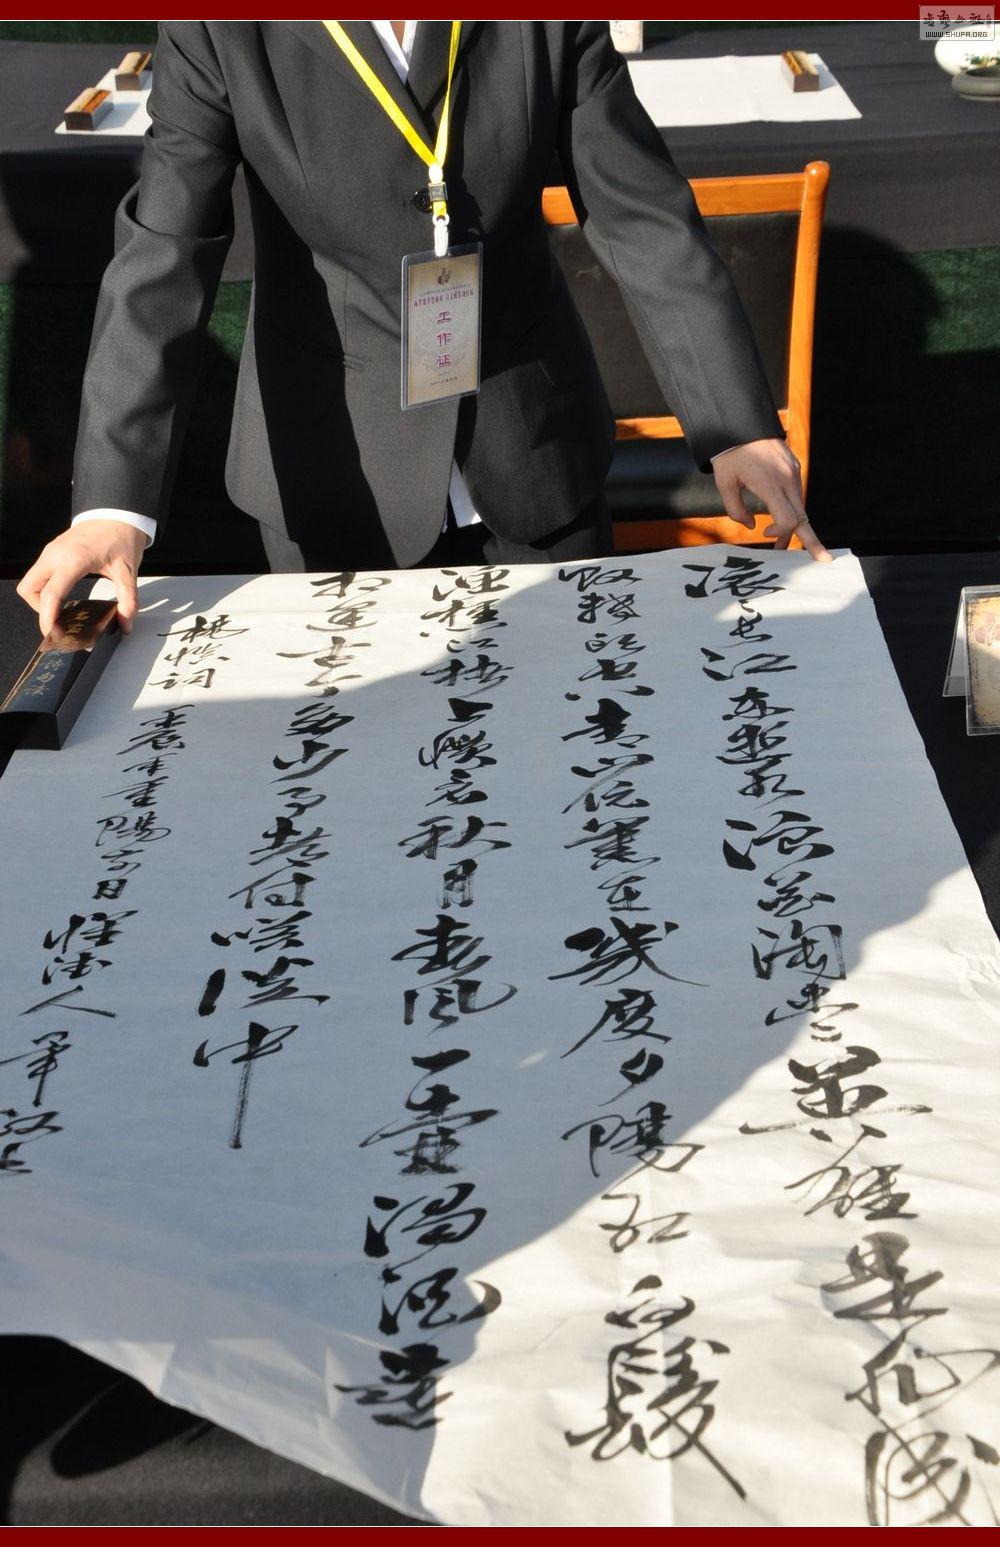 书艺公社
WWW.SHUFA.ORG
工作证
滚滚长江东逝水浪花淘尽英雄是非成
败转头空青山依旧在几度夕陽红白髮
渔樵江渚上惯看秋月春风一壶浊酒喜
相逢古今多少事都付笑谈中
楊慎词
壬辰年重陽前日